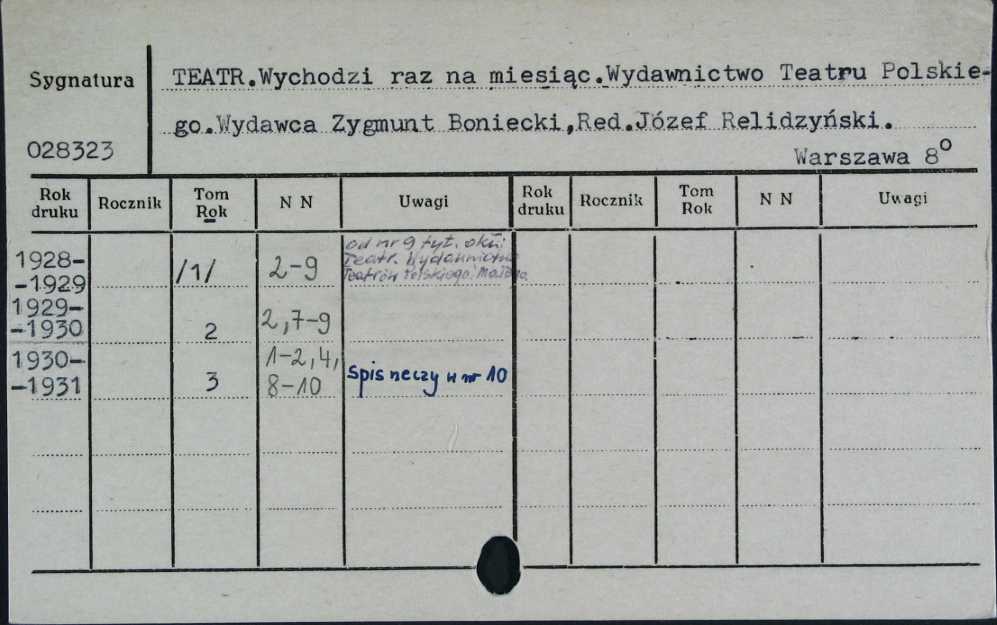 Sygnatura
TEATR.Wychodzi raz na miesiąc.Wydawnictwo Teatru Polskie-
go.Wydawca Zygmunt Boniecki,Red.Józef Relidzyński.
028323
Warszawa 8°
Rok druku Rocznik Tom Rok N N Uwagi Rok druku Rocznik Tom Rok N N Uwagi
od nr 9 tyt. okł.:
Teatr. Wydawnictwo
Teatrów Polskiego i Małego
1928-
-1929 /1/ 2-9
1929-
-1930 2 2,7-9
1930- 1-2,4,
-1931 3 8-10 Spis rzeczy w nr 10